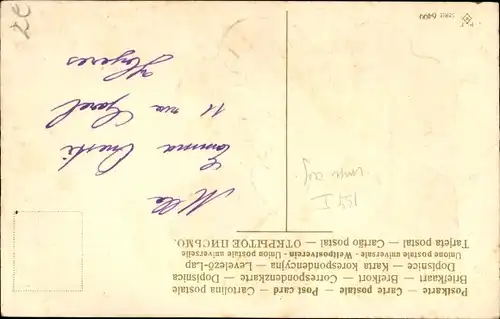 Postkarte — Carte postale — Post card — Cartolina postale
Briefkaart — Brefkort — Correspondenzkarte — Dopisnica
Dopisnice — Karta korespondencyjna — Levelező-Lap
Union postale universelle - Weltpostverein - Unione postale universale
Tarjeta postal — Cartão postal — ОТКРЫТОЕ ПИСЬМО.
Mlle
Emma
11 rue
Hyères
151 I
SERIE 6400